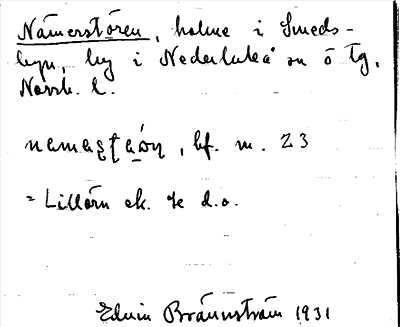 Nämerstören, holme i Smeds-
byn, by i Nederluleå sn ö Tg,
Norrb. l.
, bf. m. 23
= Lillörn ek. % d.o.
Edvin Brännström 1931